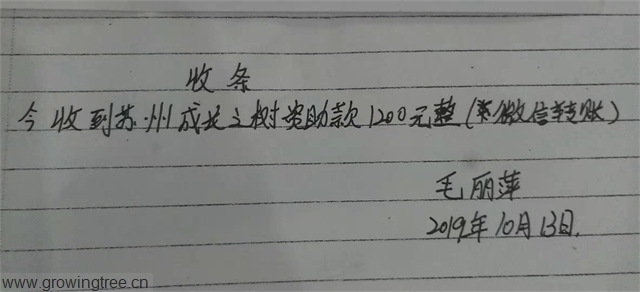 收条
今收到苏州成长之树资助款1200元整(微信转账)
毛丽萍
2019年10月13日.
www.growingtree.cn